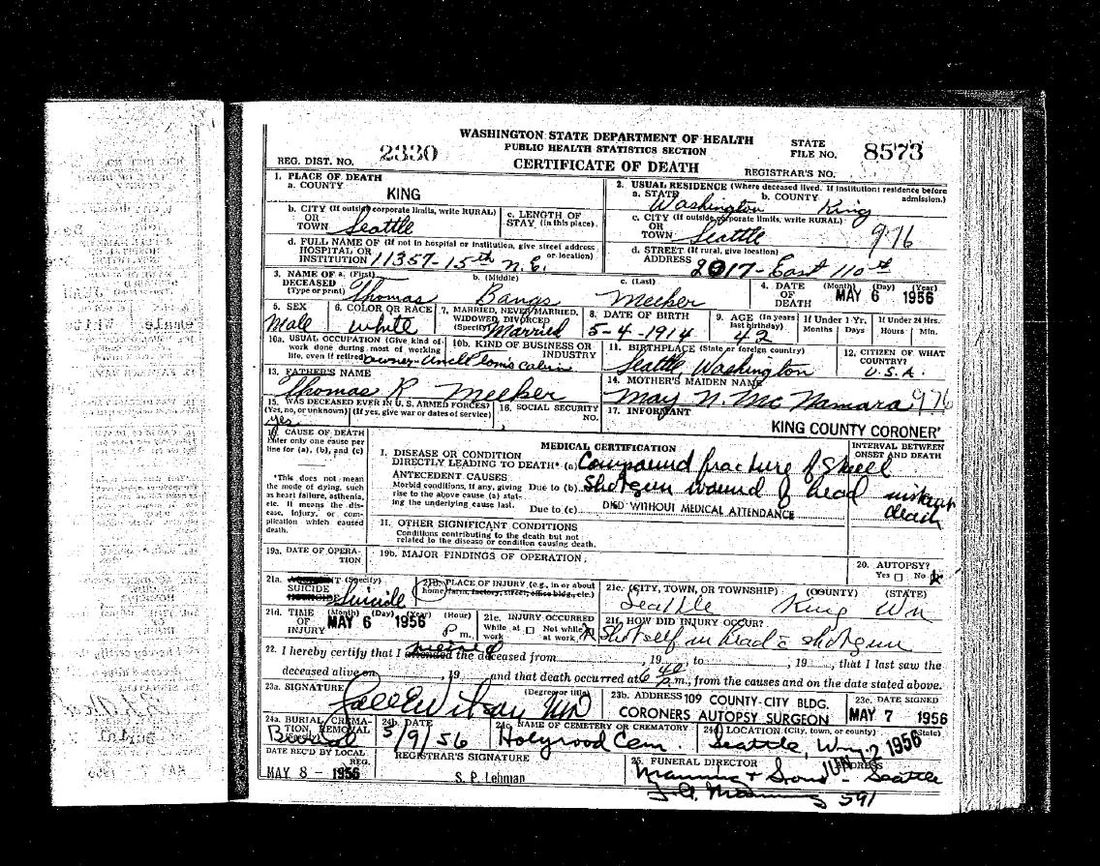 WASHINGTON STATE DEPARTMENT OF HEALTH
PUBLIC HEALTH STATISTICS SECTION
CERTIFICATE OF DEATH
REG. DIST. NO. 2330
STATE FILE NO. 8573
REGISTRAR'S NO.
1. PLACE OF DEATH
a. COUNTY KING
2. USUAL RESIDENCE (Where deceased lived. If institution: residence before admission.)
a. STATE Washington b. COUNTY King
b. CITY (If outside corporate limits, write RURAL) OR TOWN Seattle
c. LENGTH OF STAY (in this place)
c. CITY (If outside corporate limits, write RURAL) OR TOWN Seattle 976
d. FULL NAME OF (If not in hospital or institution, give street address or location) HOSPITAL OR INSTITUTION 11357-15th N.E.
d. STREET (If rural, give location) ADDRESS 2017-East 110th
3. NAME OF DECEASED (Type or print)
a. (First) Thomas b. (Middle) Bangs c. (Last) Meeker
4. DATE OF DEATH (Month) (Day) (Year) MAY 6 1956
5. SEX Male
6. COLOR OR RACE White
7. MARRIED, NEVER MARRIED, WIDOWED, DIVORCED (Specify) Married
8. DATE OF BIRTH 5-4-1914
9. AGE (In years last birthday) 42
If Under 1 Yr. Months Days
If Under 24 Hrs. Hours Min.
10a. USUAL OCCUPATION (Give kind of work done during most of working life, even if retired) owner-Uncle Tom's Cabin
10b. KIND OF BUSINESS OR INDUSTRY
11. BIRTHPLACE (State or foreign country) Seattle, Washington
12. CITIZEN OF WHAT COUNTRY? U.S.A.
13. FATHER'S NAME Thomas R. Meeker
14. MOTHER'S MAIDEN NAME May N. McNamara 976
15. WAS DECEASED EVER IN U.S. ARMED FORCES? (Yes, no, or unknown) (If yes, give war or dates of service) yes
16. SOCIAL SECURITY NO.
17. INFORMANT KING COUNTY CORONER
18. CAUSE OF DEATH
Enter only one cause per line for (a), (b), and (c)
*This does not mean the mode of dying, such as heart failure, asthenia, etc. It means the disease, injury, or complication which caused death.
MEDICAL CERTIFICATION
INTERVAL BETWEEN ONSET AND DEATH
I. DISEASE OR CONDITION DIRECTLY LEADING TO DEATH* (a) Compound fracture of skull
ANTECEDENT CAUSES
Morbid conditions, if any, giving rise to the above cause (a) stating the underlying cause last.
Due to (b) Shotgun wound of head instant death
Due to (c) DIED WITHOUT MEDICAL ATTENDANCE
II. OTHER SIGNIFICANT CONDITIONS
Conditions contributing to the death but not related to the disease or condition causing death.
19a. DATE OF OPERATION
19b. MAJOR FINDINGS OF OPERATION
20. AUTOPSY? Yes No
21a. ACCIDENT (Specify) SUICIDE HOMICIDE Suicide
21b. PLACE OF INJURY (e.g., in or about home, farm, factory, street, office bldg., etc.)
21c. (CITY, TOWN, OR TOWNSHIP) (COUNTY) (STATE)
Seattle King Wn
21d. TIME OF INJURY (Month) (Day) (Year) (Hour) MAY 6 1956 P m.
21e. INJURY OCCURRED While at work Not while at work
21f. HOW DID INJURY OCCUR? Shot self in head c̄ shotgun
22. I hereby certify that I attended the deceased from , 19 , to , 19 , that I last saw the
deceased alive on , 19 , and that death occurred at 640 p m., from the causes and on the date stated above.
23a. SIGNATURE (Degree or title) Wilson MD
23b. ADDRESS 109 COUNTY-CITY BLDG.
CORONERS AUTOPSY SURGEON
23c. DATE SIGNED MAY 7 1956
24a. BURIAL, CREMATION, REMOVAL (Specify) Burial
24b. DATE 5/9/56
24c. NAME OF CEMETERY OR CREMATORY Holyrood Cem.
24d. LOCATION (City, town, or county) (State) Seattle, Wn
JUN 2 1956
DATE REC'D BY LOCAL REG. MAY 8 - 1956
REGISTRAR'S SIGNATURE S. P. Lehman
25. FUNERAL DIRECTOR ADDRESS
Manning & Sons - Seattle
Manning 591